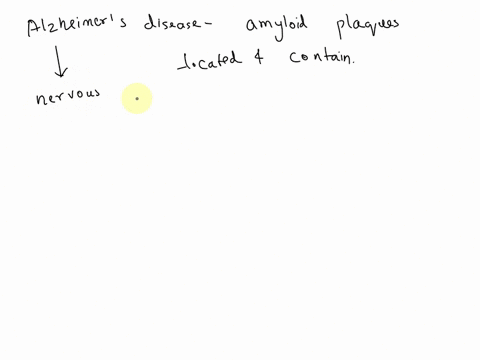 Alzheimer's disease - amyloid plaques
located & contain.
nervous